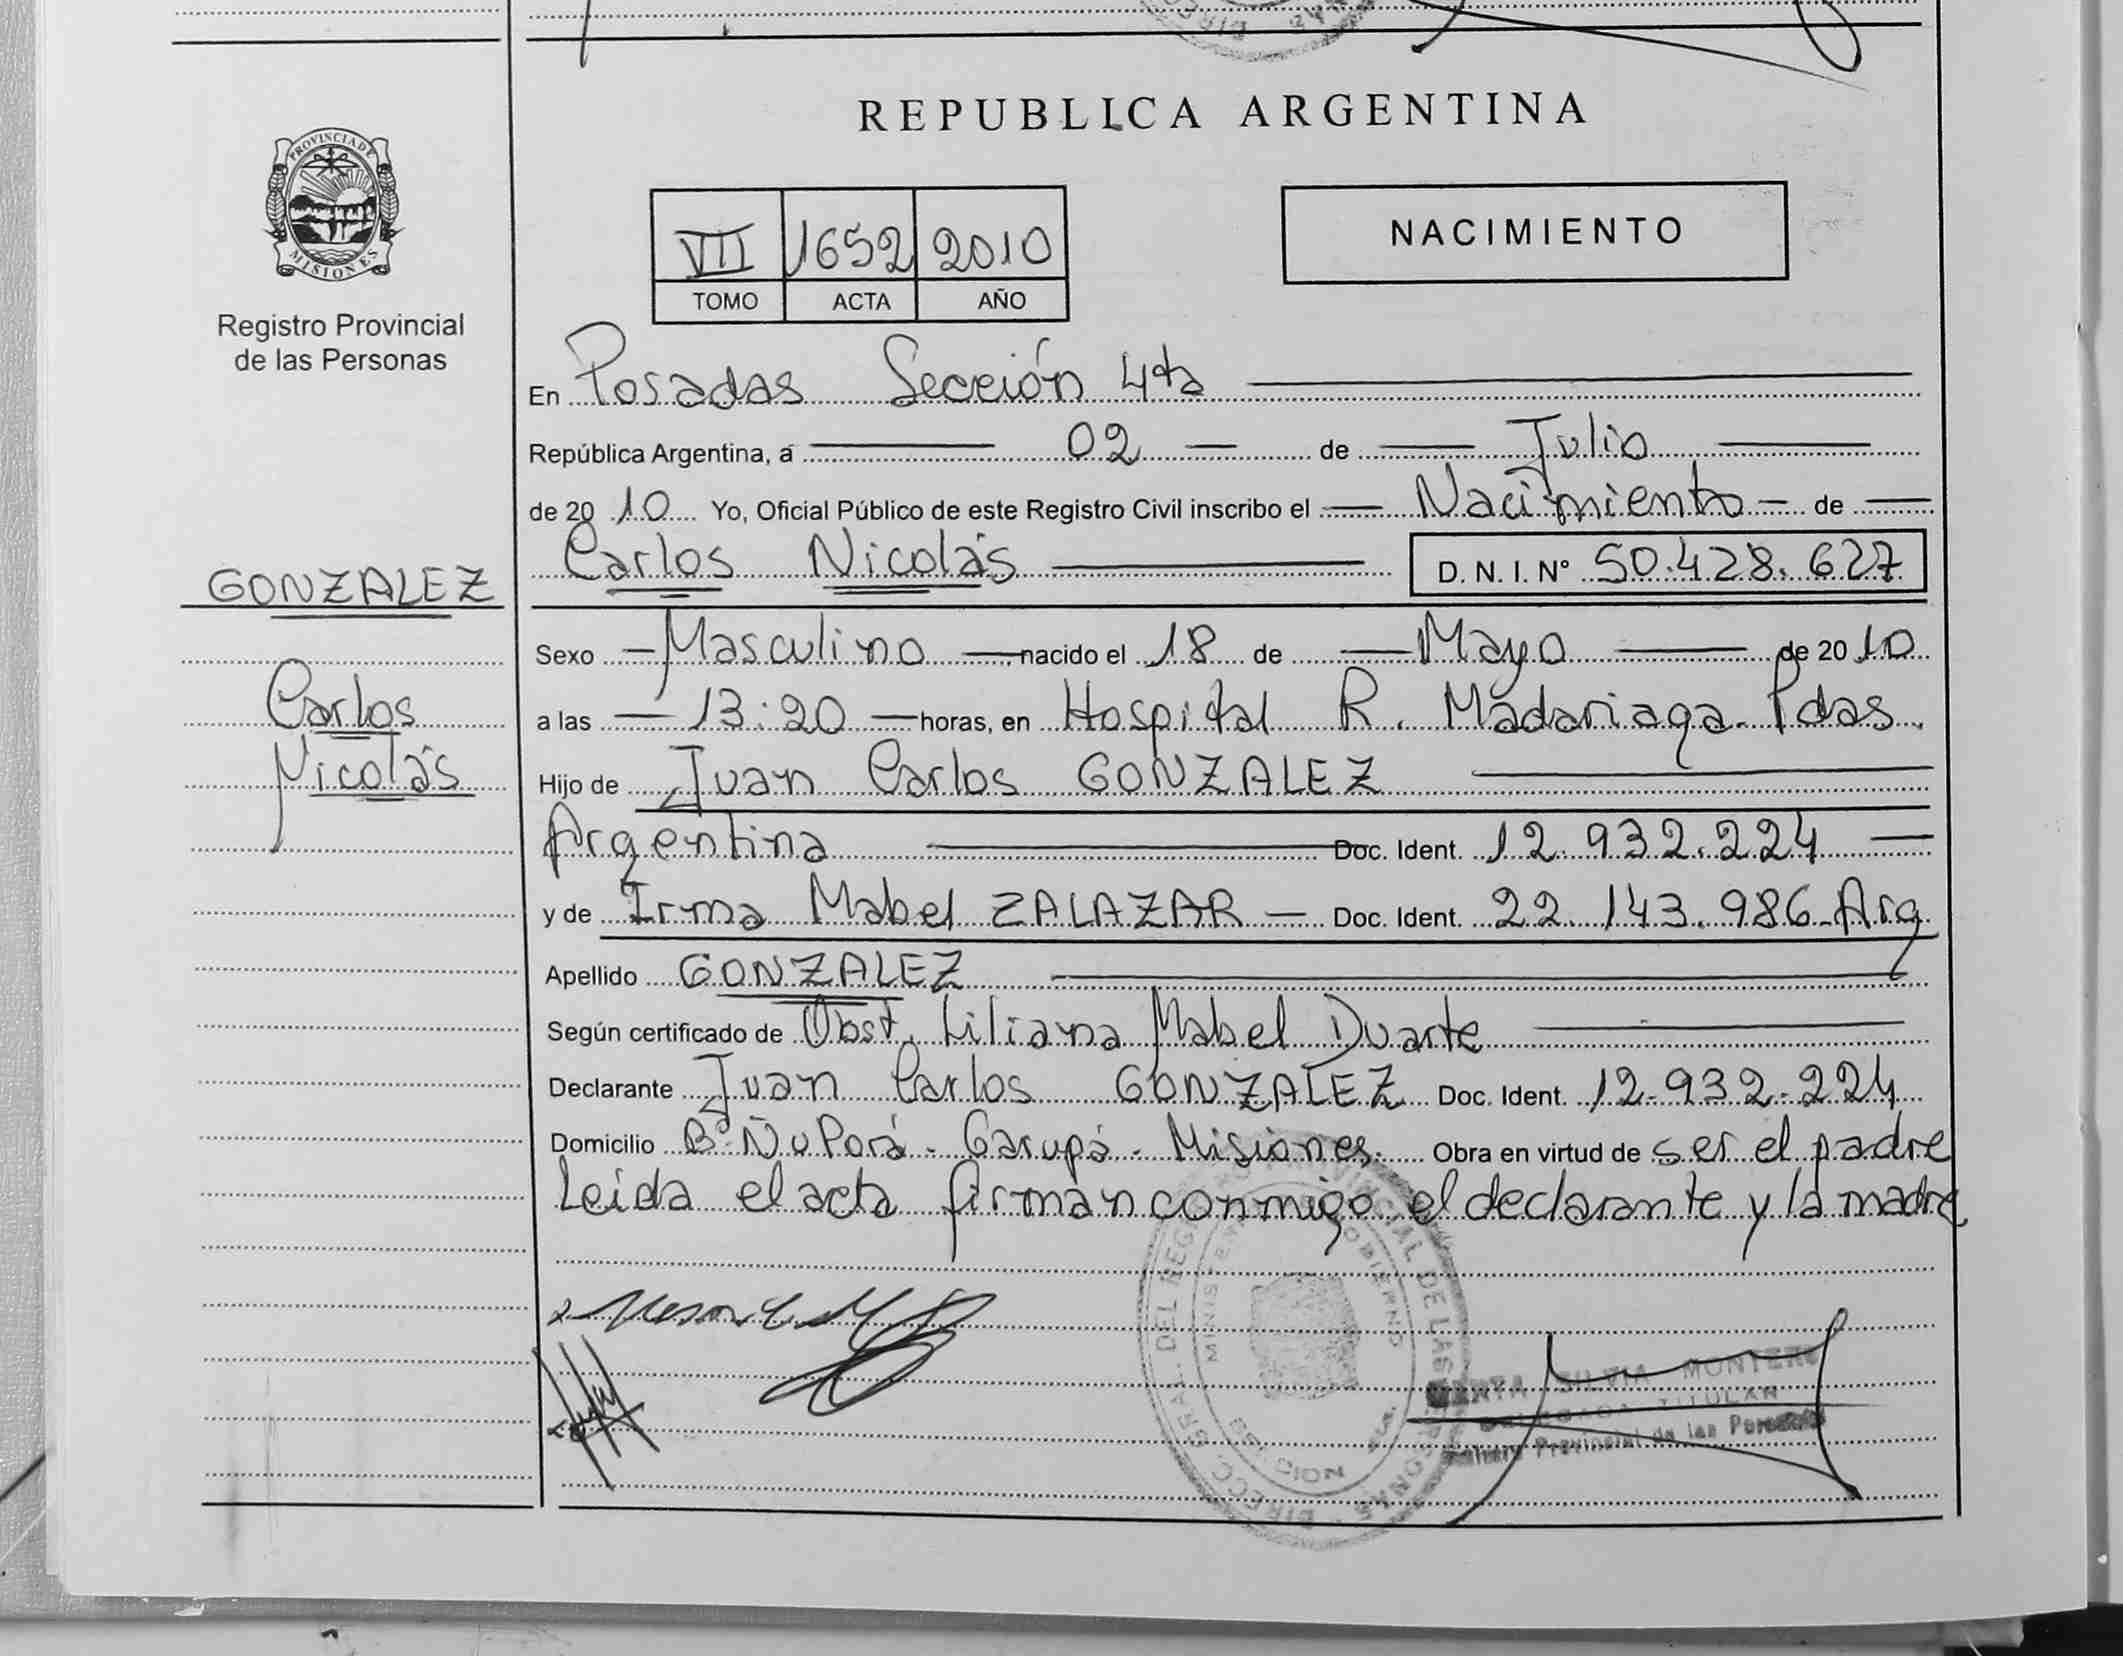 REPUBLICA ARGENTINA
PROVINCIA DE
MISIONES
Registro Provincial
de las Personas
VII 1652 2010
TOMO ACTA AÑO
NACIMIENTO
En Posadas Sección 4ta
República Argentina, a 02 de Julio
de 2010 Yo, Oficial Público de este Registro Civil inscribo el Nacimiento de
Carlos Nicolás D. N. I. Nº 50.428.627
GONZALEZ
Carlos
Nicolás
Sexo Masculino nacido el 18 de Mayo de 2010
a las 13:20 horas, en Hospital R. Madariaga - Pdas.
Hijo de Juan Carlos GONZALEZ
Argentina Doc. Ident. 12.932.224
y de Irma Mabel ZALAZAR Doc. Ident. 22.143.986 - Arg
Apellido GONZALEZ
Según certificado de Obst. Liliana Mabel Duarte
Declarante Juan Carlos GONZALEZ Doc. Ident. 12.932.224
Domicilio Bº Ñu Porá - Garupá - Misiones. Obra en virtud de ser el padre
Leída el acta firman conmigo el declarante y la madre
SILVIA MONTERO
DELEGADA TITULAR
Provincial de las Personas